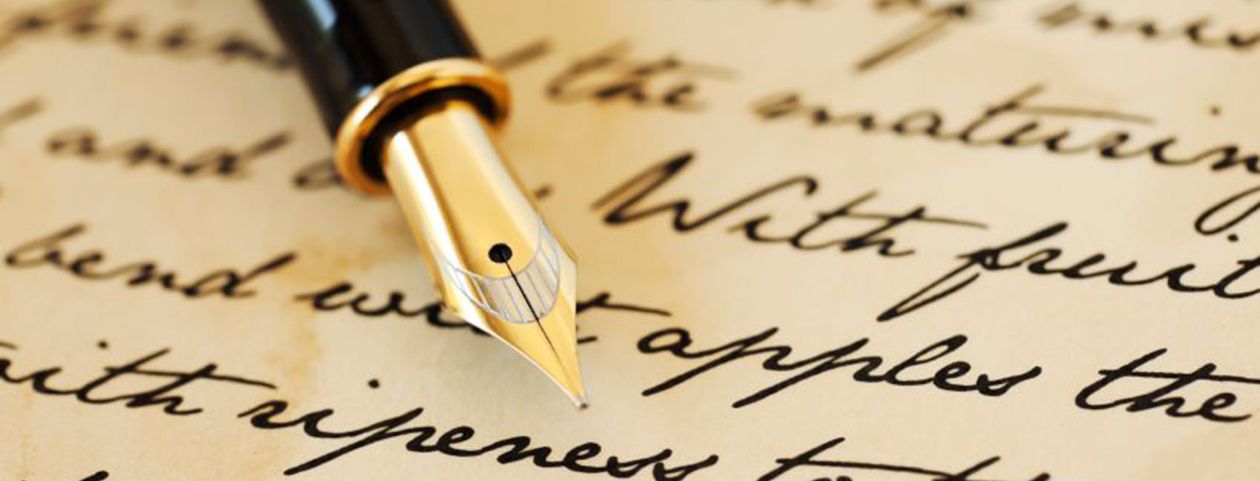 of
the maturing
and With fruit
bend apples the
with ripeness to